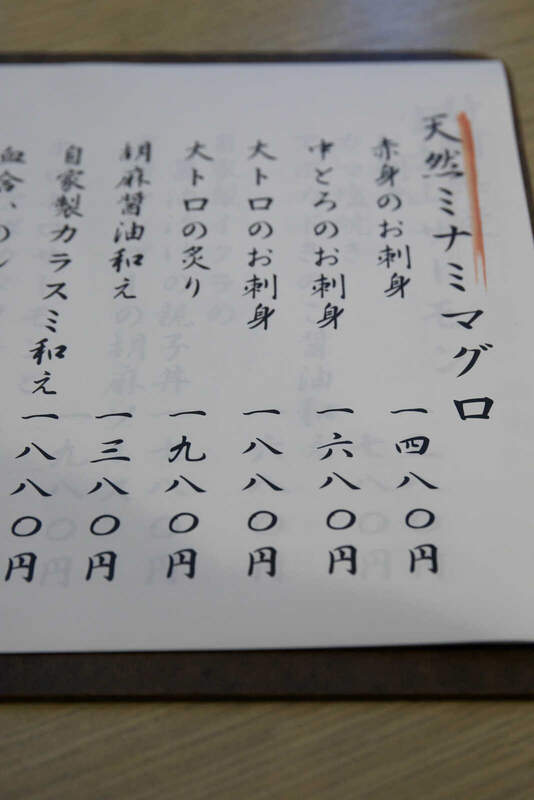 天然ミナミマグロ
赤身のお刺身 一四八〇円
中とろのお刺身 一六八〇円
大トロのお刺身 一八八〇円
大トロの炙り 一九八〇円
胡麻醤油和え 一三八〇円
自家製カラスミ和え 一八八〇円
血合いの